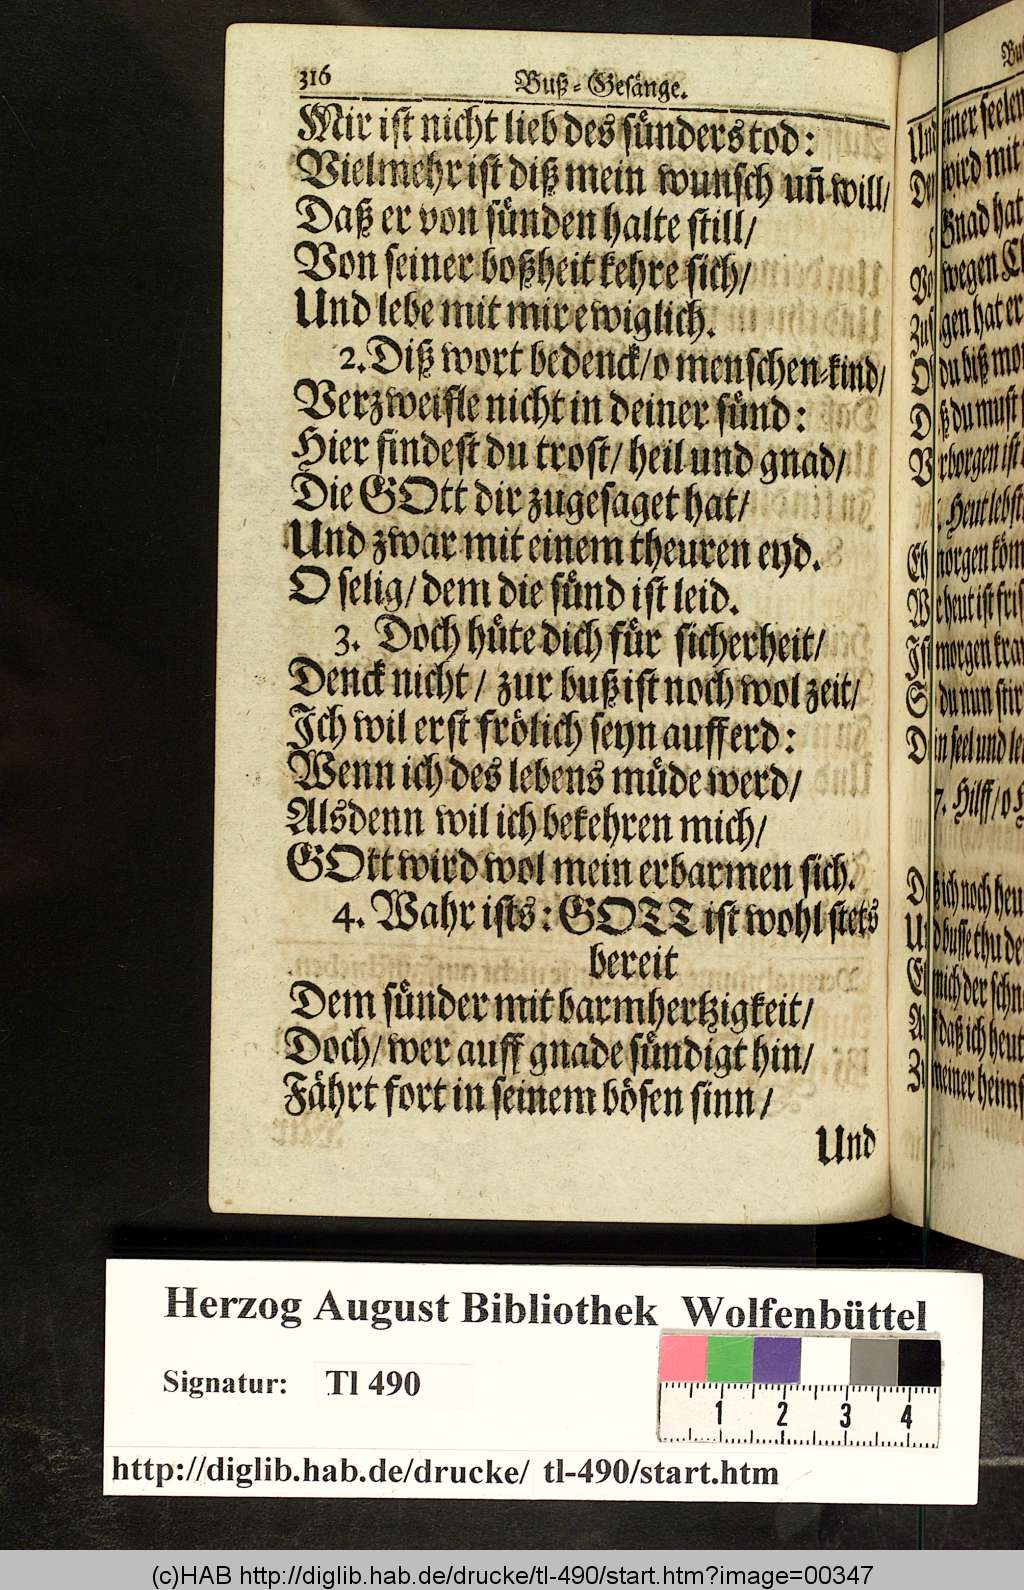 316 Buß-Gesänge.
Mir ist nicht lieb des sünders tod:
Vielmehr ist diß mein wunsch uñ will/
Daß er von sünden halte still/
Von seiner boßheit kehre sich/
Und lebe mit mir ewiglich.
2. Diß wort bedenck/ o menschen-kind/
Verzweifle nicht in deiner sünd:
Hier findest du trost/ heil und gnad/
Die GOtt dir zugesaget hat/
Und zwar mit einem theuren eyd.
O selig/ dem die sünd ist leid.
3. Doch hüte dich für sicherheit/
Denck nicht/ zur buß ist noch wol zeit/
Ich wil erst frölich seyn auff erd:
Wenn ich des lebens müde werd/
Alsdenn wil ich bekehren mich/
GOtt wird wol mein erbarmen sich.
4. Wahr ists: GOTT ist wohl stets
bereit
Dem sünder mit barmhertzigkeit/
Doch/ wer auff gnade sündigt hin/
Fährt fort in seinem bösen sinn/
Und
Und einer seelen
wird mit
Gnad hat
wegen
gen hat er
du biß mor
ß du must
rborgen ist
Heut lebst
morgen
heut ist fris
morgen
du nun stir
in seel und
7. Hilff/ o
ich noch heu
busse thu
mich der
daß ich heut
meiner heimf
Herzog August Bibliothek Wolfenbüttel
Signatur: Tl 490
1 2 3 4
http://diglib.hab.de/drucke/ tl-490/start.htm
(c)HAB http://diglib.hab.de/drucke/tl-490/start.htm?image=00347